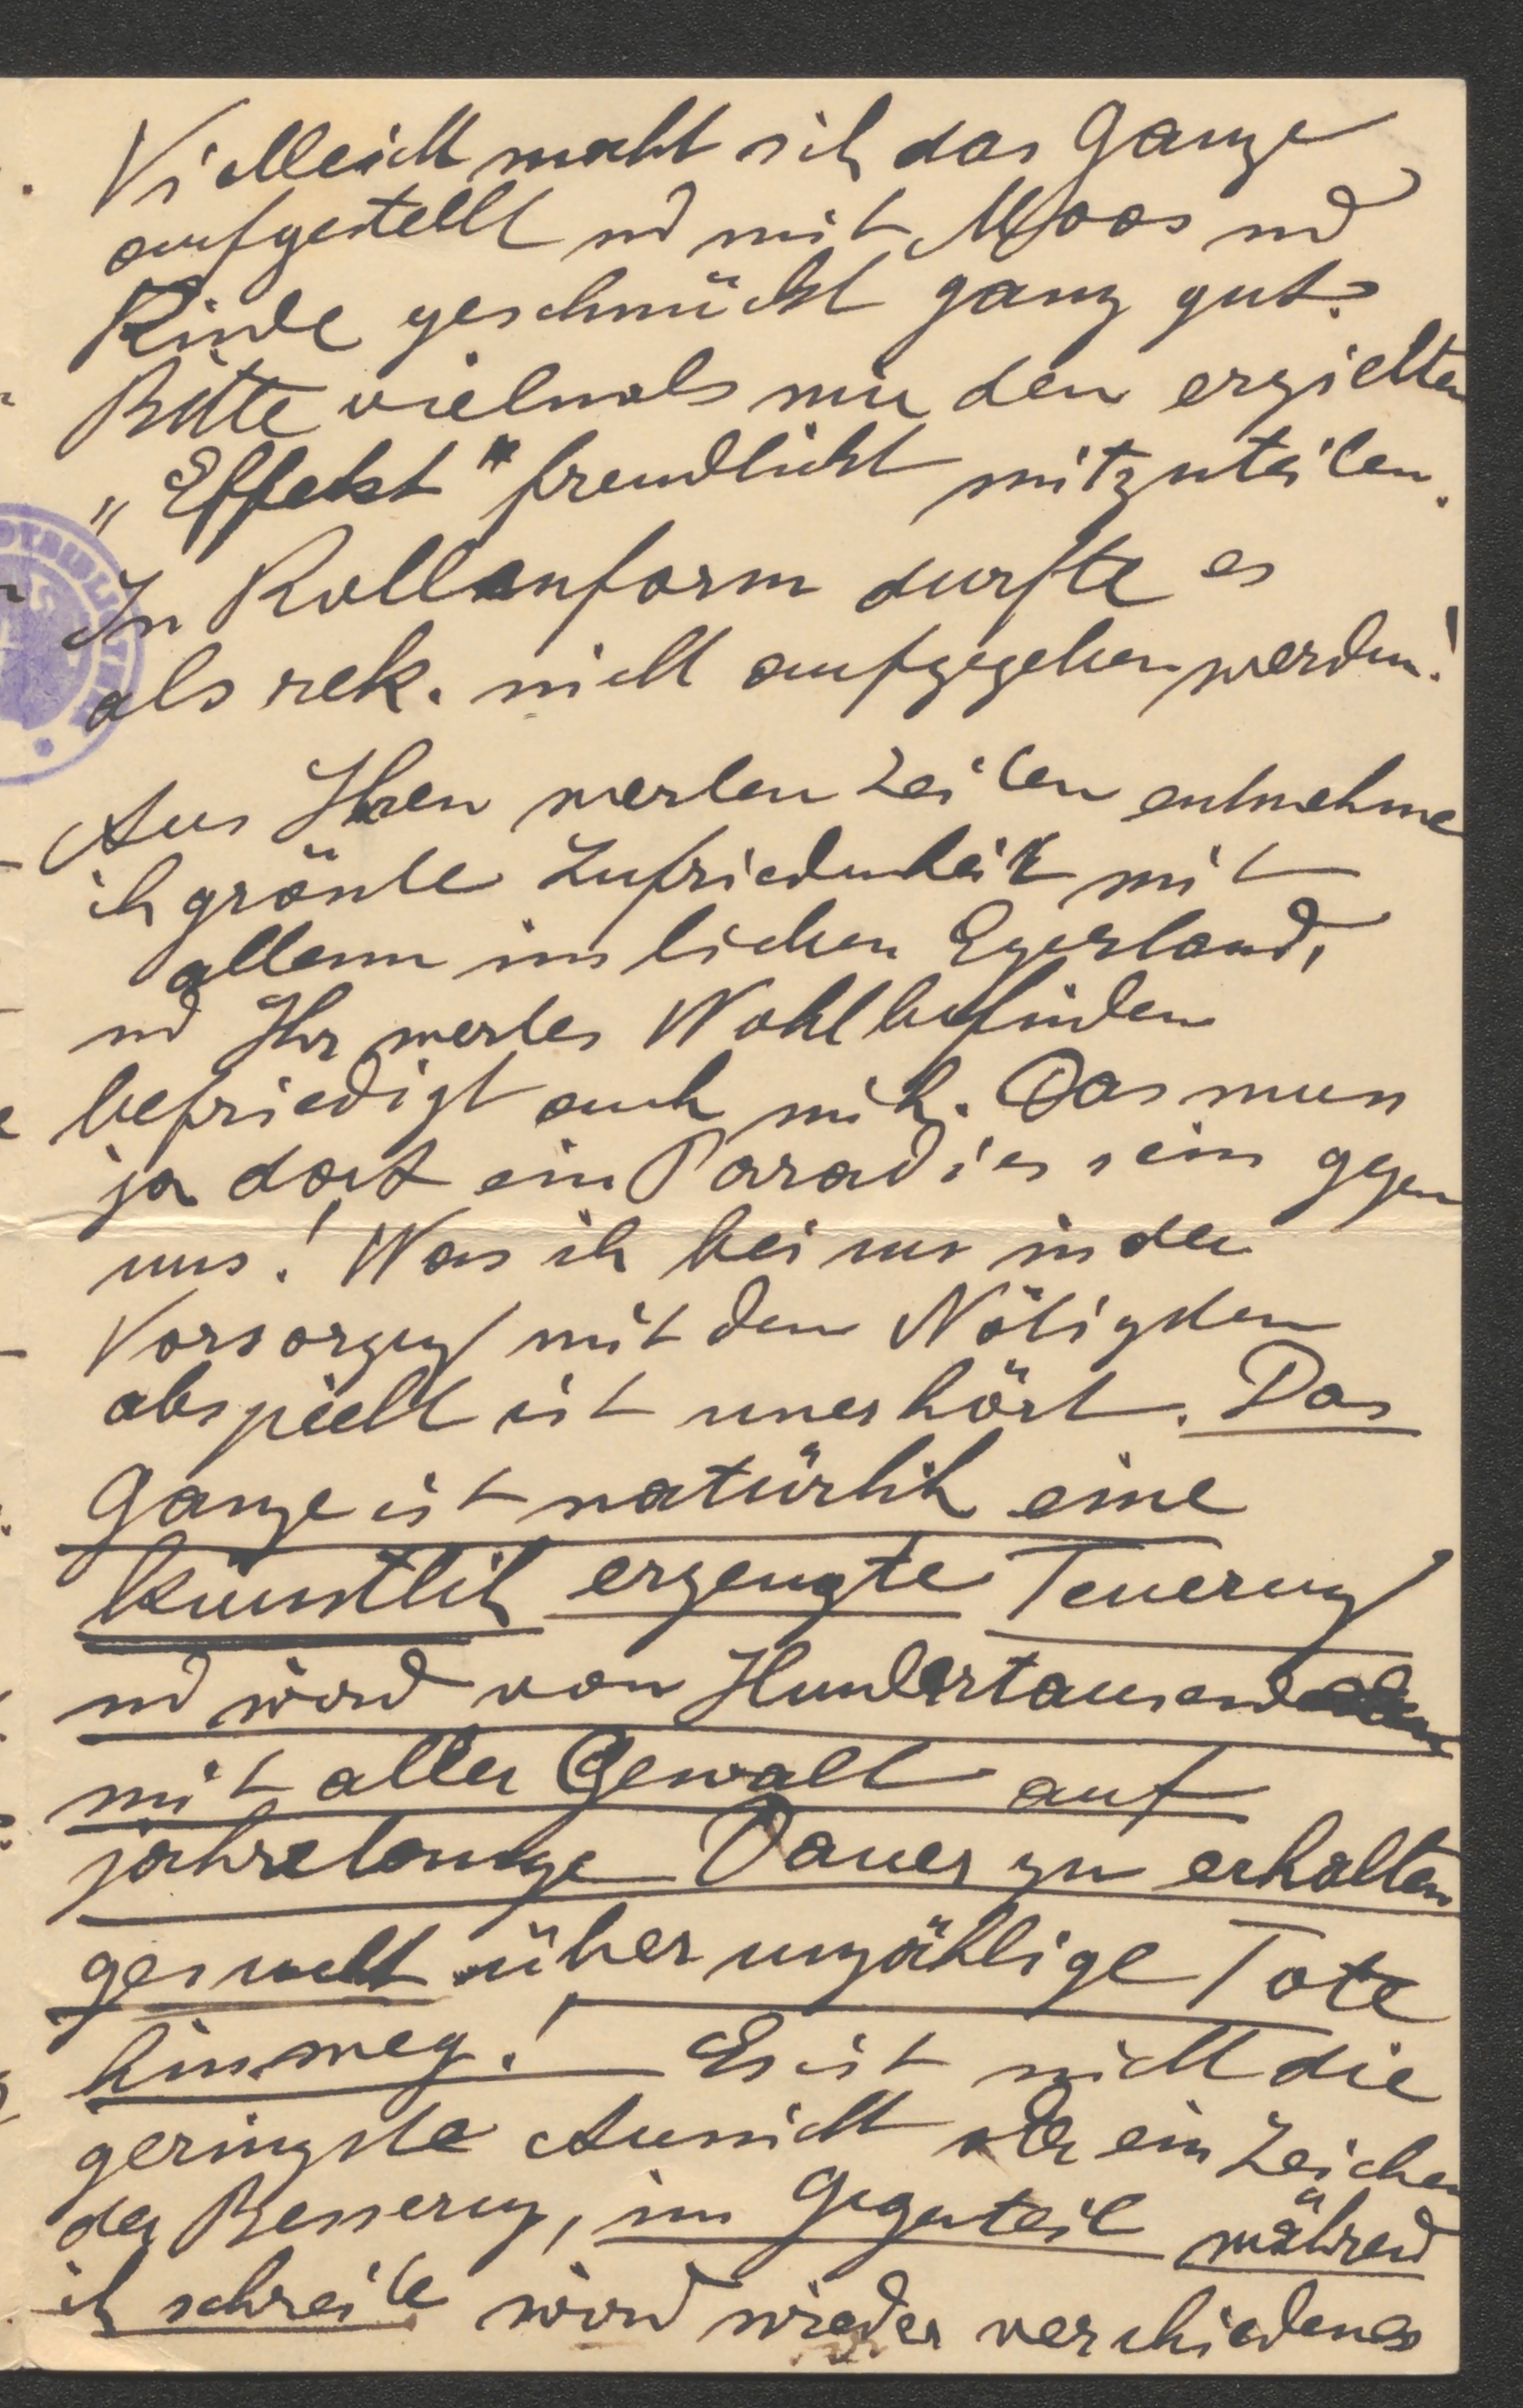 Vielleicht macht sich das Ganze
aufgestellt und mit Moos und
Rinde geschmückt ganz gut.
Bitte vielmals mir den erzielten
„Effekt" freundlichst mitzuteilen.
In Rollenform durfte es
als rek. nicht aufgegeben werden!
Aus Ihren werten Zeilen entnehme
ich größte Zufriedenheit mit
allem im lieben Egerland,
und Ihr wertes Wohlbefinden
befriedigt auch mich. Das muss
ja dort ein Paradies sein gegen
uns! Was sich bei uns in der
Versorgung mit dem Nötigsten
abspielt ist unerhört. Das
Ganze ist natürlich eine
künstlich erzeugte Teuerung
und wird von Hunderttausenden
mit aller Gewalt auf
jahrelange Dauer zu erhalten
gesucht über unzählige Tote
hinweg! Es ist nicht die
geringste Aussicht oder ein Zeichen
der Besserung, im Gegenteil während
ich schreibe wird wieder verschiedenes